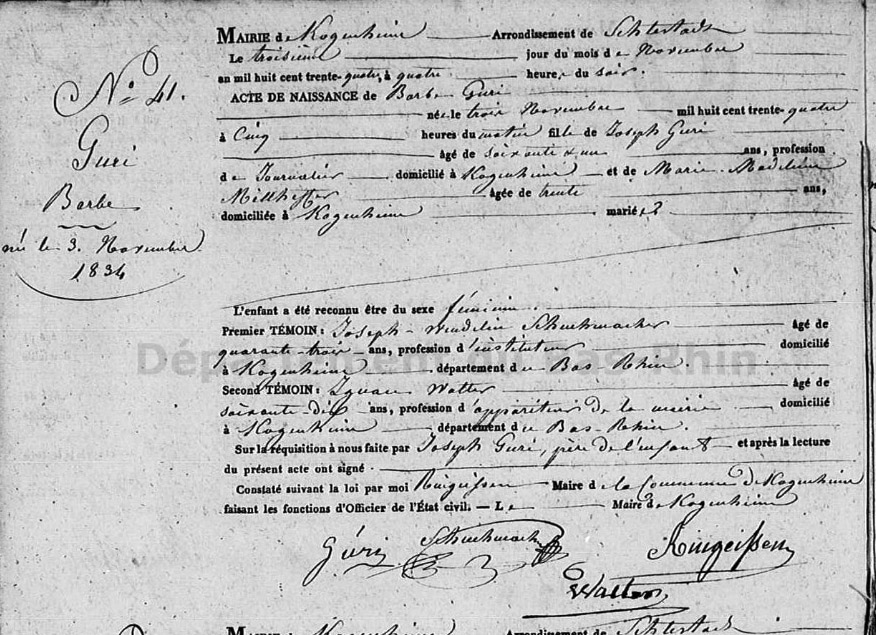 MAIRIE de Kogenheim Arrondissement de Schlestadt
Le troisième jour du mois de Novembre
an mil huit cent trente-quatre, à quatre heures du soir.
ACTE DE NAISSANCE de Barbe Guri
née le trois Novembre mil huit cent trente-quatre
à Cinq heures du matin fille de Joseph Guri
âgé de soixante & un ans, profession
de Journalier domicilié à Kogenheim et de Marie Madeleine
âgée de trente ans,
domiciliée à Kogenheim mariés
L'enfant a été reconnu être du sexe féminin
Premier TÉMOIN: Joseph-Wendelin Schuhmacher âgé de
quarante-trois ans, profession d'instituteur domicilié
à Kogenheim département du Bas-Rhin
Second TÉMOIN: Ignace Walter âgé de
soixante-dix ans, profession d'appariteur de la mairie domicilié
à Kogenheim département du Bas-Rhin.
Sur la réquisition à nous faite par Joseph Guri, père de l'enfant et après la lecture
du présent acte ont signé.
Constaté suivant la loi par moi Ringeissen Maire de la Commune de Kogenheim
faisant les fonctions d'Officier de l'État civil. — Le Maire de Kogenheim
Guri Schuhmacher Ringeissen
Walter
No 41.
Guri
Barbe
née le 3. Novembre
1834
Département du Bas-Rhin
MAIRIE de Kogenheim Arrondissement de Schlestadt